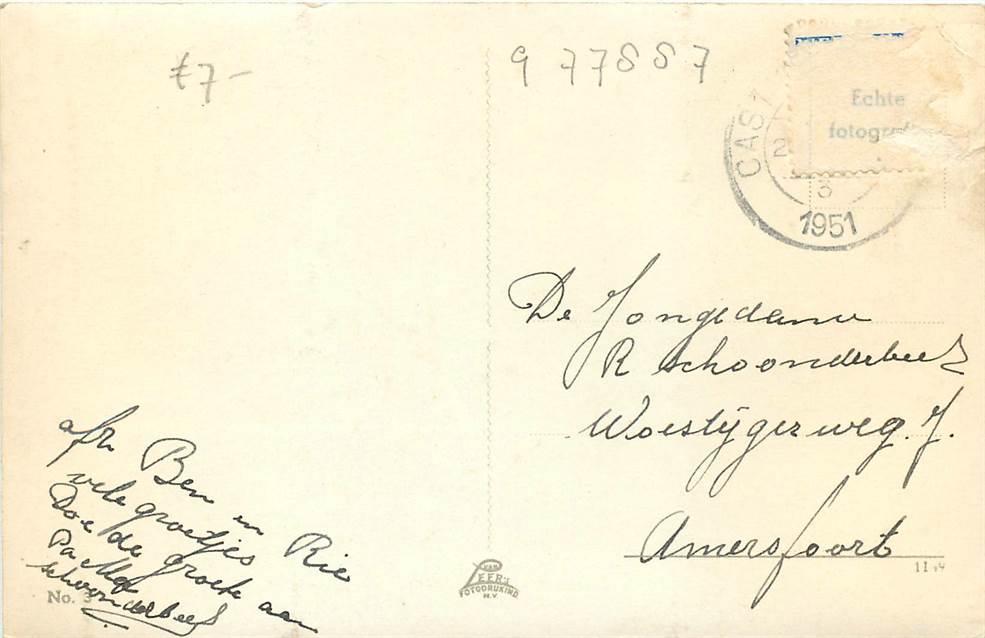 £7-
9 77887
CAST
2
3
1951
Echte
fotogra
De Jongedame
R Schoonderbeek
Woestijgerweg. J.
Amersfoort
11
afz Ben en Rie
vele groetjes
Doe de groete aan
Pa Moe
schoonderbeek
No. 3
VAN
LEER'S
FOTODRUKIND.
N.V.